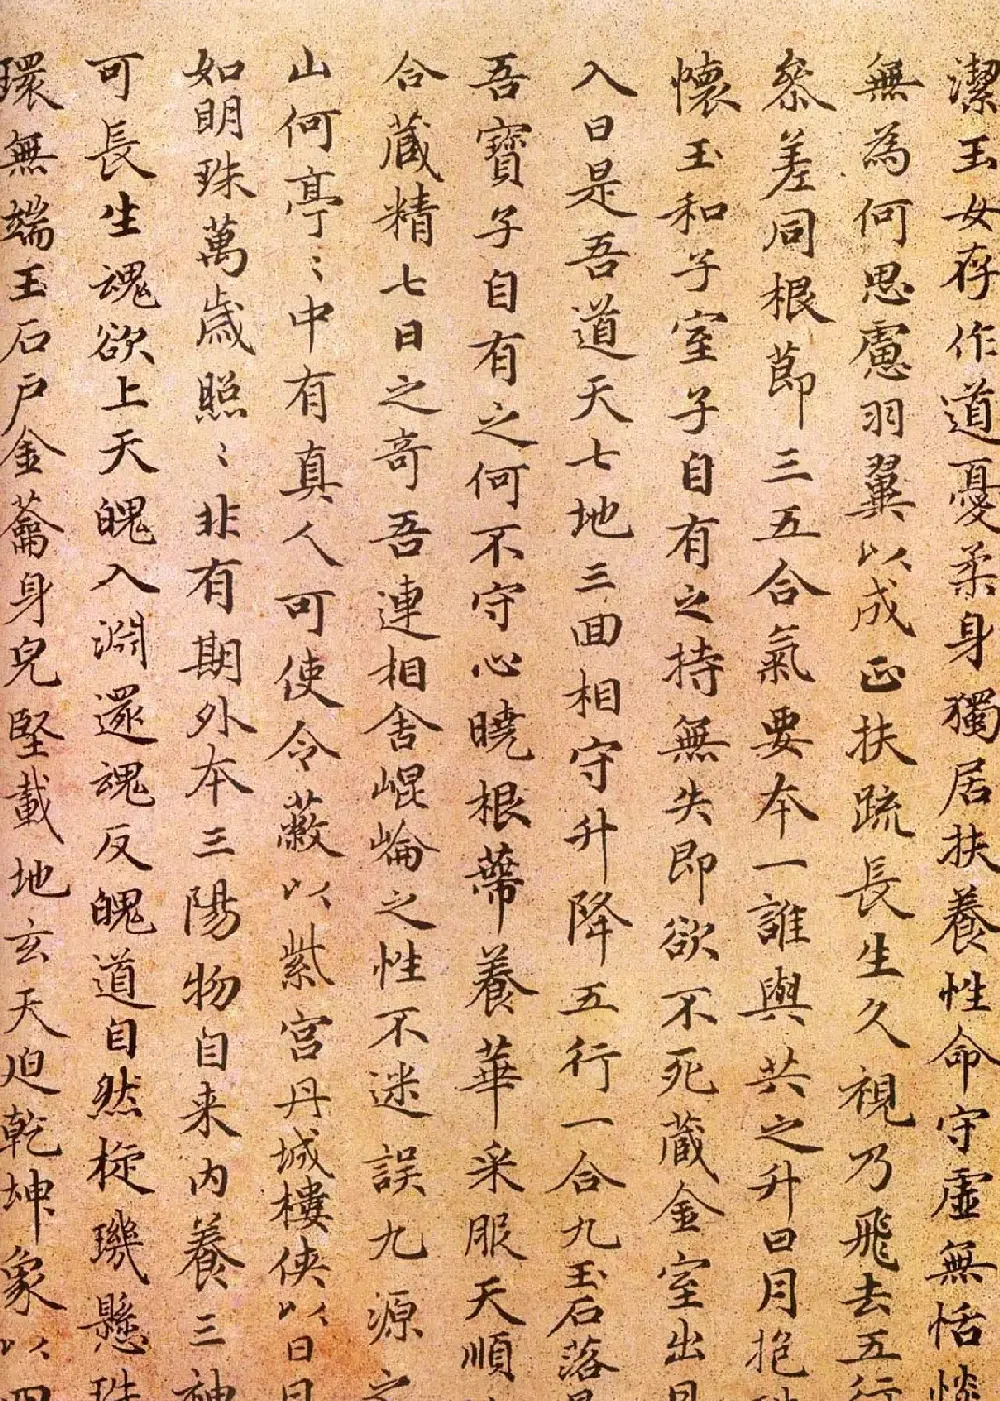 潔玉女存作道憂柔身獨居扶養性命守虛無恬惔
無為何思慮羽翼以成正扶疏長生久視乃飛去五行
參差同根節三五合氣要本一誰與共之升日月抱
懷玉和子室子自有之持無失即欲不死藏金室出月
入日是吾道天七地三回相守升降五行一合九玉石落
吾寶子自有之何不守心曉根蒂養華采服天順
合藏精七日之奇吾連相舍崐崘之性不迷誤九源之
山何亭〻中有真人可使令蔽以紫宮丹城樓俠以日月
如明珠萬歲照〻非有期外本三陽物自来内養三神
可長生魂欲上天魄入淵還魂反魄道自然梞璣懸珠
環無端玉石戶金籥身皃堅載地玄天迫乾坤象以四